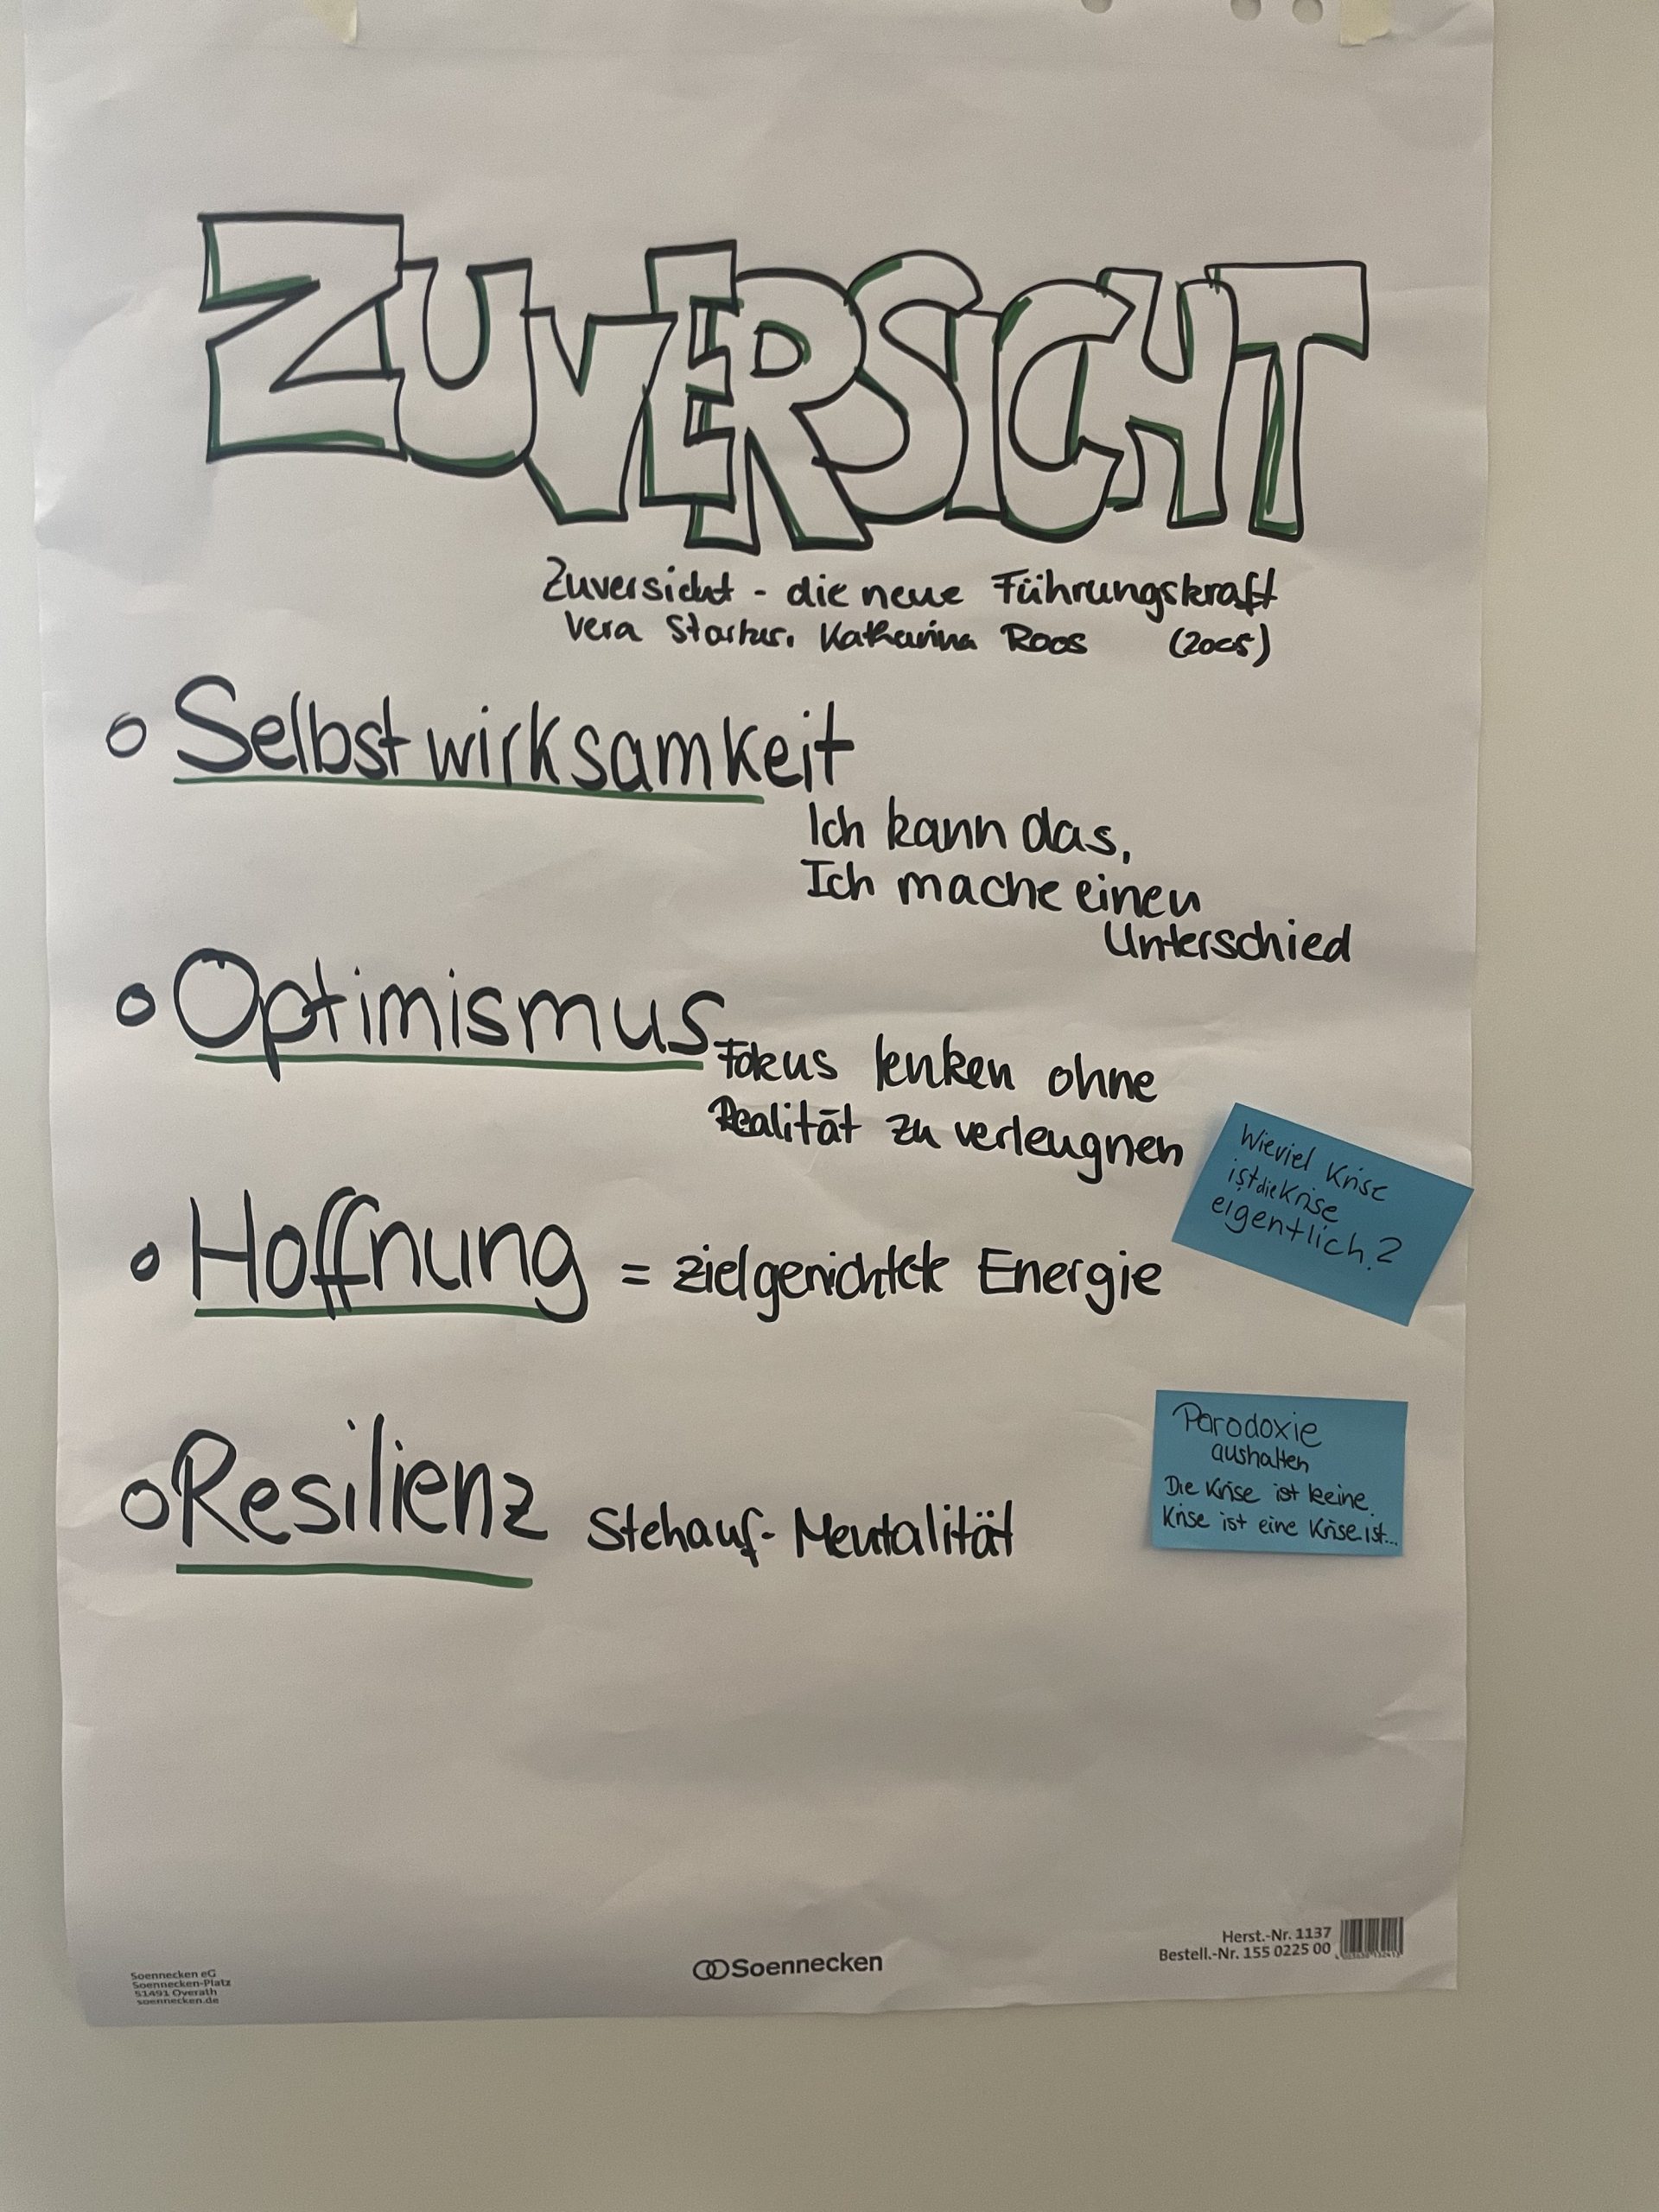 ZUVERSICHT
Zuversicht - die neue Führungskraft
Vera Starker, Katharina Roos (2005)
o Selbstwirksamkeit
Ich kann das,
Ich mache einen
Unterschied
o Optimismus
Fokus lenken ohne
Realität zu verleugnen
Wieviel Krise
ist die Krise
eigentlich?
o Hoffnung = zielgerichtete Energie
Paradoxie
aushalten
Die Krise ist keine
Krise ist eine Krise ist...
o Resilienz Stehauf-Mentalität
Soennecken eG
Soennecken-Platz
51491 Overath
soennecken.de
Soennecken
Herst.-Nr. 1137
Bestell.-Nr. 155 0225 00